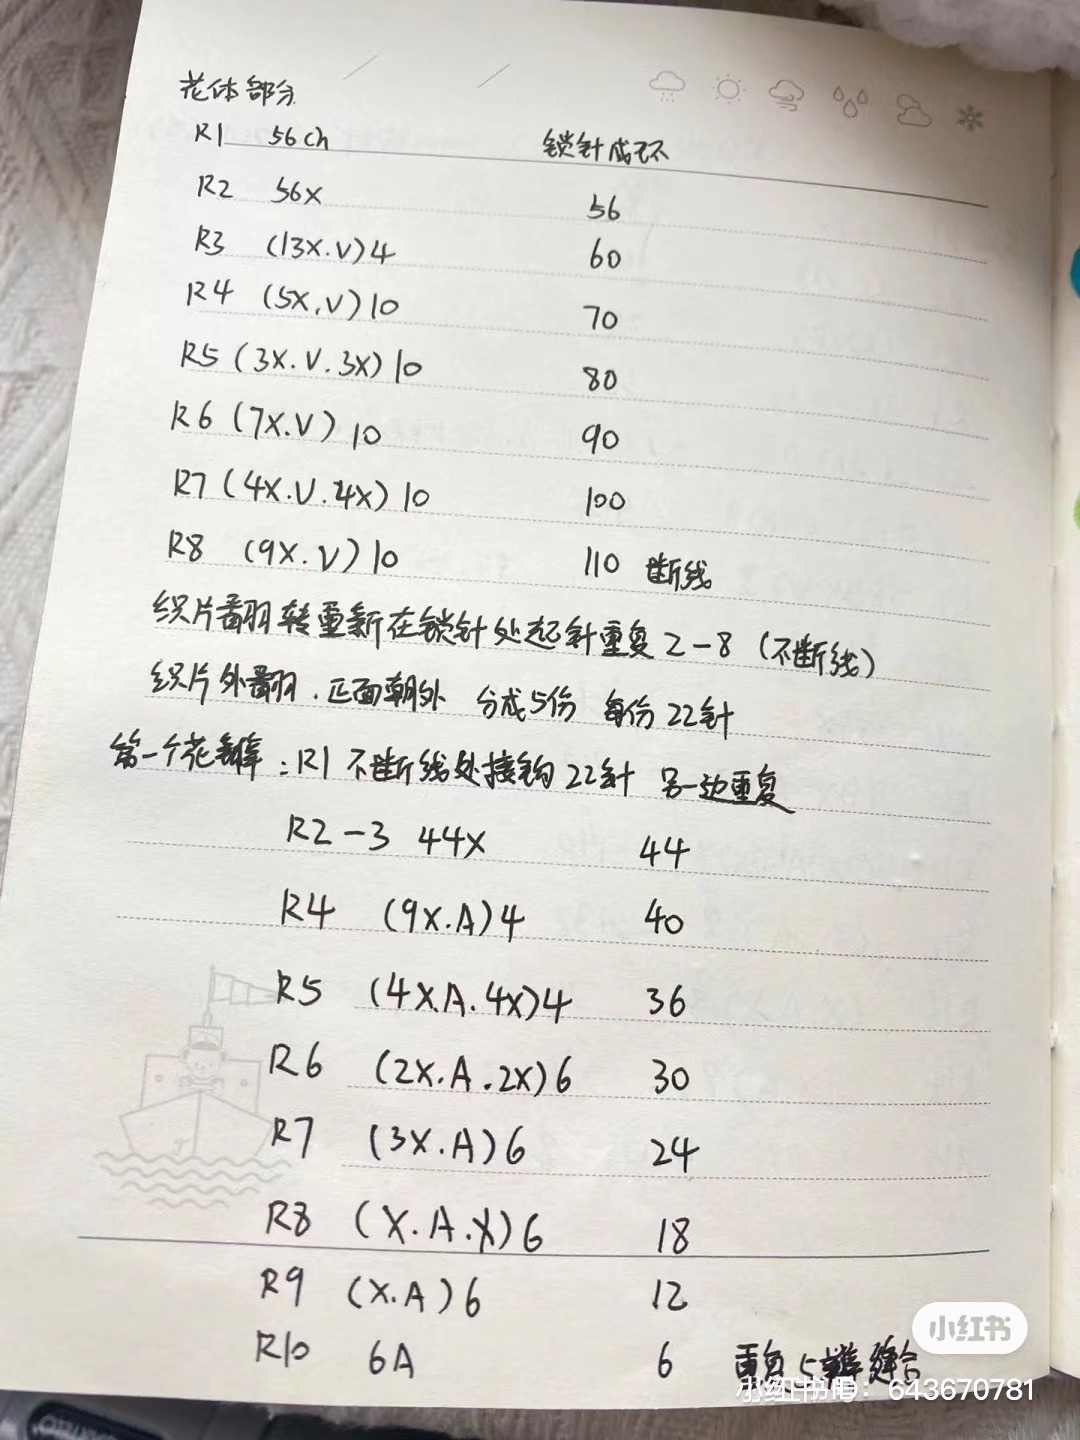 花体部分
R1 56ch 锁针成环
R2 56X 56
R3 (13X.V)4 60
R4 (5X,V)10 70
R5 (3X.V.3X)10 80
R6 (7X.V)10 90
R7 (4X.V.4X)10 100
R8 (9X.V)10 110 断线
织片翻转重新在锁针处起针重复2-8(不断线)
织片外翻.正面朝外 分成5份 每份22针
第一个花瓣:R1 不断线处接钩22针 另一边重复
R2-3 44X 44
R4 (9X.A)4 40
R5 (4X.A.4X)4 36
R6 (2X.A.2X)6 30
R7 (3X.A)6 24
R8 (X.A.X)6 18
R9 (X.A)6 12
R10 6A 6 重复5瓣缝合
小红书
小红书号:643670781